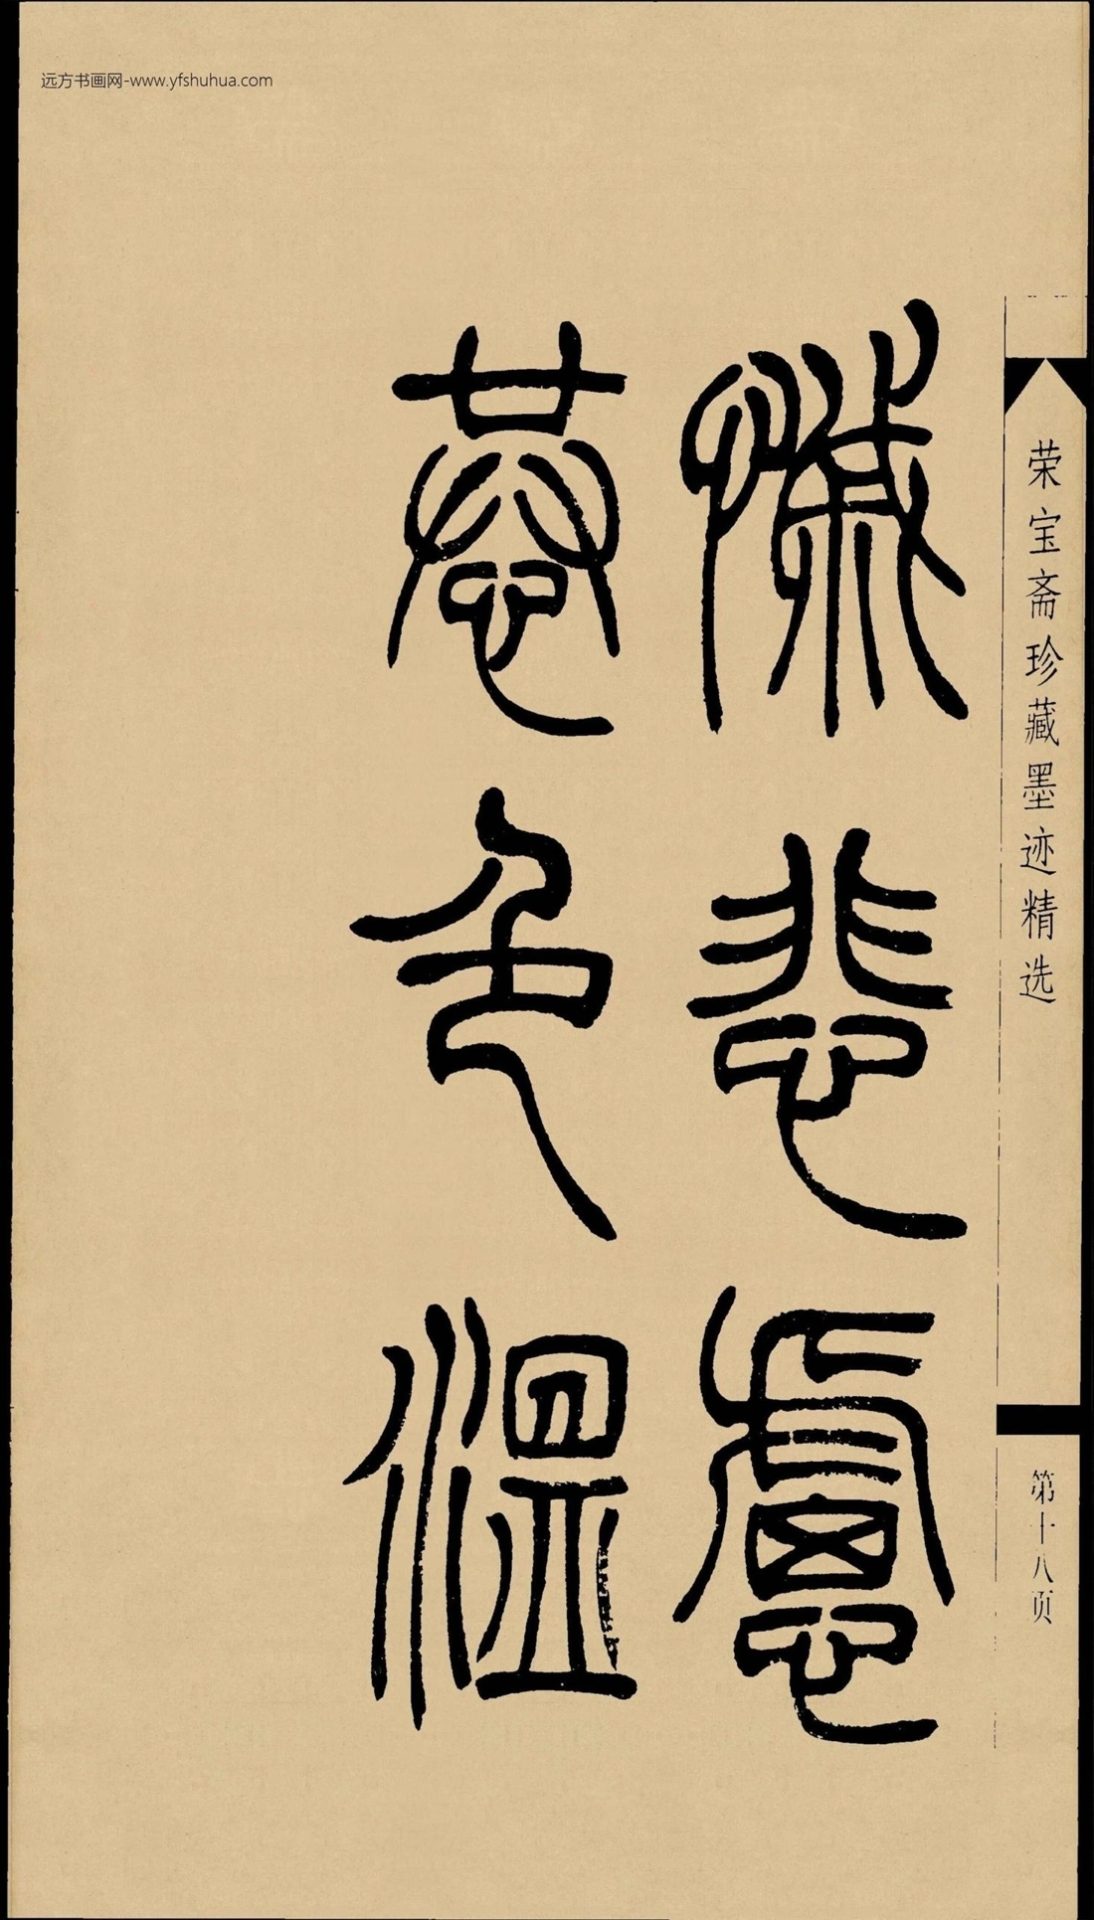 远方书画网-www.yfshuhua.com
荣宝斋珍藏墨迹精选
第十八页
慽悲慮
恭色溫